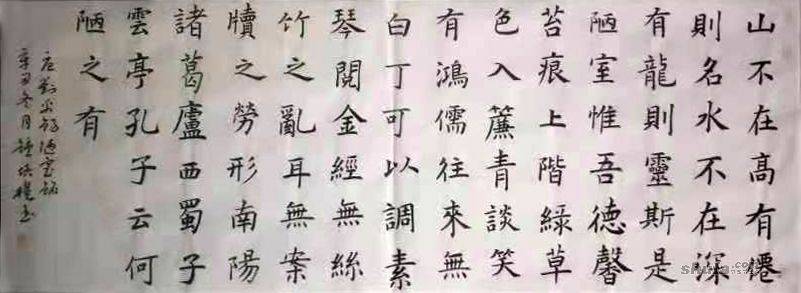 山不在高有僊
則名水不在深
有龍則靈斯是
陋室惟吾德馨
苔痕上階綠草
色入簾青談笑
有鴻儒往來無
白丁可以調素
琴閱金經無絲
竹之亂耳無案
牘之勞形南陽
諸葛廬西蜀子
雲亭孔子云何
陋之有
唐劉禹錫陋室銘
辛丑冬月鍾書